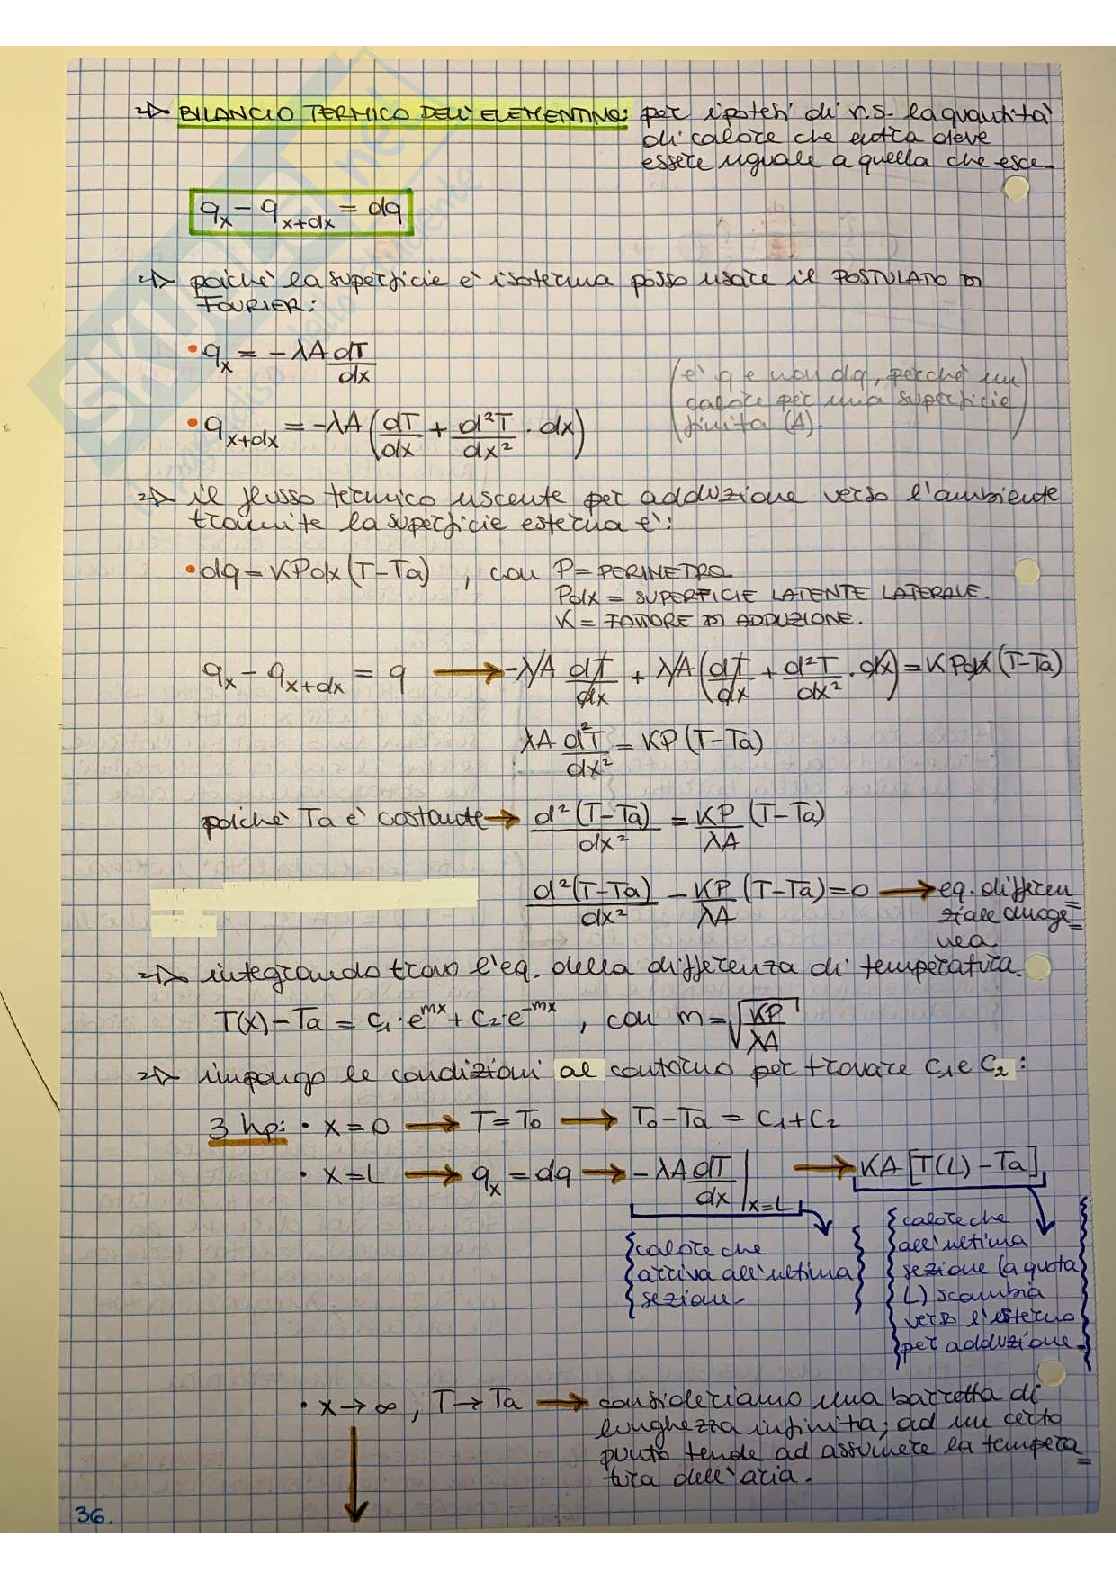 => BILANCIO TERMICO DELL'ELEMENTINO: per ipotesi di r.s. la quantità
di calore che entra deve
essere uguale a quella che esce.
qx - qx+dx = dq
=> poiché la superficie è isoterma posso usare il POSTULATO DI
FOURIER:
• qx = -λA dT/dx
(è q e non dq, perché un
calore per una superficie
finita (A).)
• qx+dx = -λA (dT/dx + d²T/dx² · dx)
=> il flusso termico uscente per adduzione verso l'ambiente
tramite la superficie esterna è:
• dq = KPdx (T-Ta) , con P = PERIMETRO
Pdx = SUPERFICIE LATENTE LATERALE.
K = FATTORE DI ADDUZIONE.
qx - qx+dx = q → -λA dT/dx + λA (dT/dx + d²T/dx² · dx) = KPdx (T-Ta)
λA d²T/dx² = KP (T-Ta)
poiché Ta è costante → d²(T-Ta)/dx² = KP/λA (T-Ta)
d²(T-Ta)/dx² - KP/λA (T-Ta) = 0 → eq. differen
ziale omoge
nea
=> integrando trovo l'eq. della differenza di temperatura.
T(x) - Ta = C₁·e^mx + C₂·e^-mx , con m = √KP/λA
=> impongo le condizioni al contorno per trovare C₁ e C₂ :
3 hp: • x = 0 → T = T₀ → T₀-Ta = C₁+C₂
• x = L → qx = dq → -λA dT/dx |x=L → KA [T(L) - Ta]
{calore che
arriva all'ultima
sezione}
{calore che
all'ultima
sezione (a quota
L) scambia
verso l'esterno
per adduzione.}
• x → ∞ , T → Ta → consideriamo una barretta di
lunghezza infinita; ad un certo
punto tende ad assumere la tempera
tura dell'aria.
36.